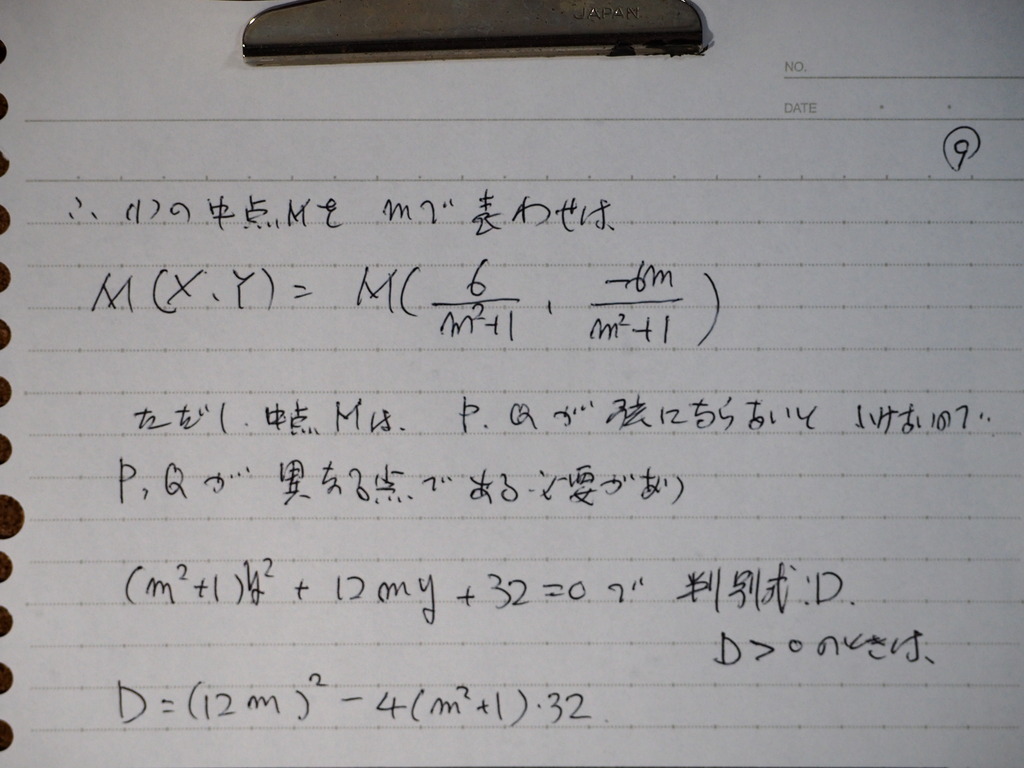 JAPAN
NO.
DATE
⑨
∴ (1)の中点Mを mで表わせば
M(X、Y) = M(6/(m²+1), -6m/(m²+1))
ただし、中点Mは、P、Qが弦にならないといけないので、
P, Qが異なる点である必要があり
(m²+1)y² + 12my + 32 = 0 で 判別式:D.
D > 0 のときは、
D = (12m)² - 4(m²+1)・32